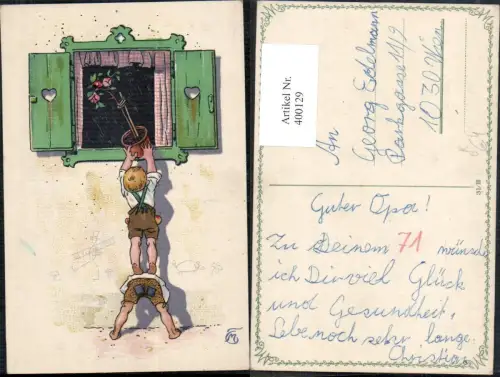 Artikel Nr.
400129
An
Georg Edelmann
Parkgasse 11/9
1030 Wien
Guter Opa!
Zu Deinem 71 wünsche
ich Dir viel Glück
und Gesundheit,
Lebe noch sehr lange.
Christian